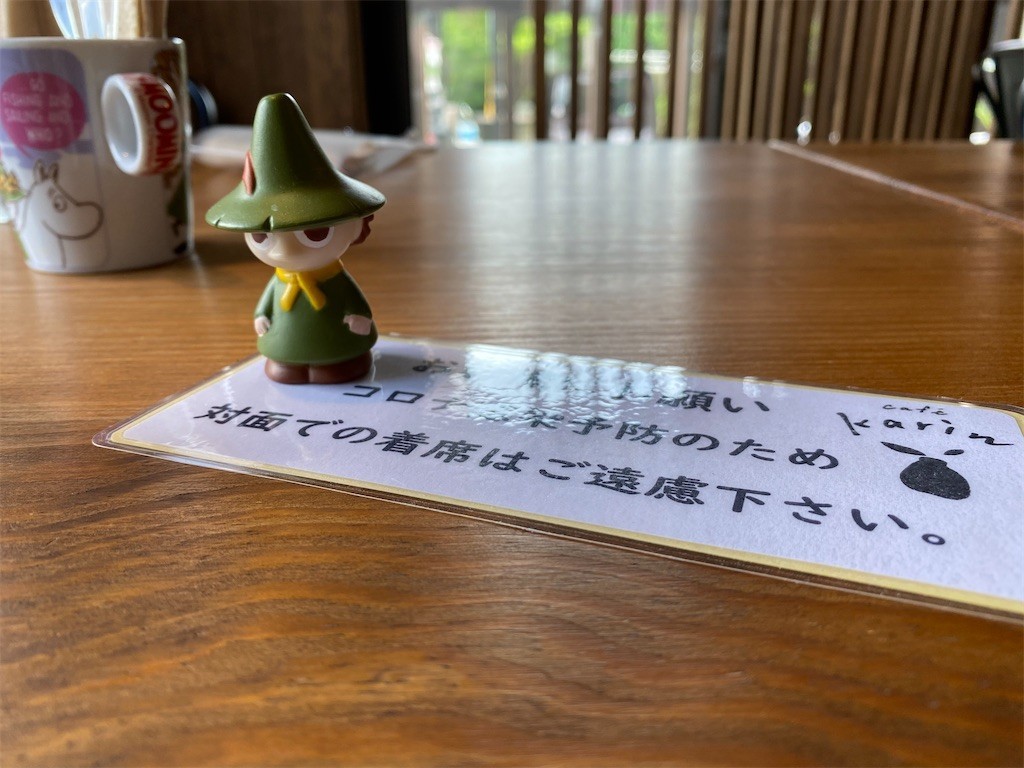 MOOMIN
お 願い
コロナ 予防のため
対面での着席はご遠慮下さい。
cafe
karin